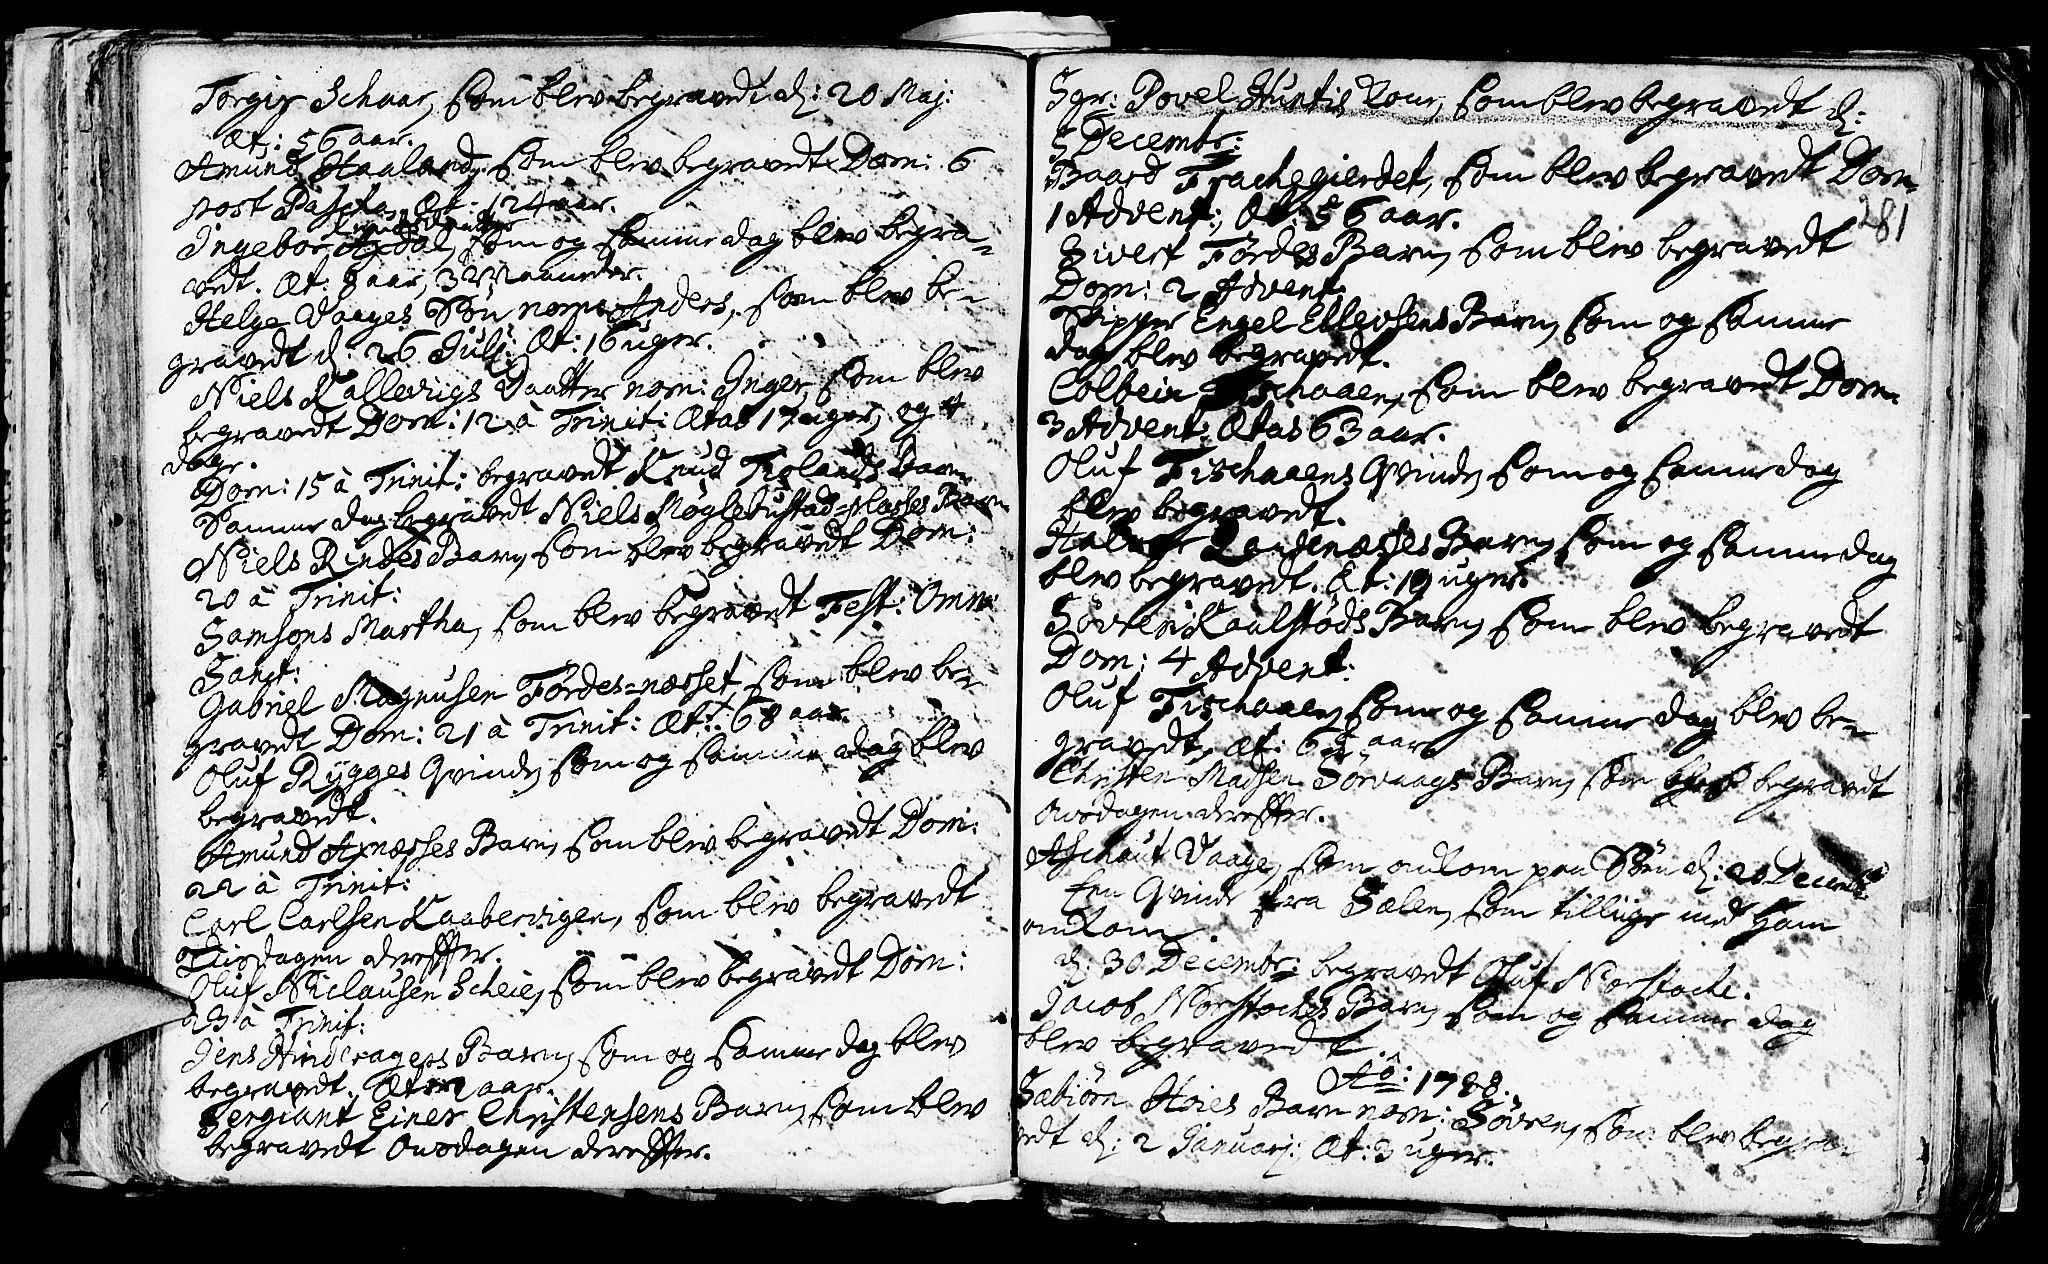 Torgir Schaar, som blev begravedt d: 20 Maj:
Æt: 56 aar.
Amund Haaland, som blev begravedt Dom: 6
post Pascha, Æt: 124 aar.
Ingebor Axdal, som og samme dag blev begra-
vedt. Æt: 8 aar, 3 Maaneder.
Helge Vaages Søn nom: Anders, som blev be-
gravedt d: 26 Julj: Æt: 16 uger.
Niels Kallevigs Daatter nom: Inger, som blev
begravedt Dom: 12 à Trinit: Ætat 17 uger, og 4
dage.
Dom: 15 à Trinit: begravedt Knud Barn
Samme dag begravedt Niels Møglebustad-plasses Barn
Niels Rindes Barn, som blev begravedt Dom:
20 à Trinit:
Samsons Martha, som blev begravedt Fest: Omn:
Sanct:
Gabriel Magnusen Førdes-næsset, som blev be-
gravedt Dom: 21 à Trinit: Æt: 68 aar.
Oluf Rygges Qvinde, som og samme dag blev
begravedt.
Amund Axnæsses Barn, som blev begravedt Dom:
22 à Trinit:
Carl Carlsen Kaabervigen, som blev begravedt
Tiisdagen dereffter.
Oluf Niclausen Scheie, som blev begravedt Dom:
23 à Trinit:
Jens Hinderagers Barn, som og samme dag blev
begravedt. Æt: aar.
Sergiant Einer Christensens Barn, som blev
begravedt Onsdagen dereffter.
Sgr: Povel Kone, som blev begravedt d:
5 Decembr:
Baard Frachegierdet, som blev begravedt Dom:
1 Advent:, Æt: 56 aar.
281
Sivert Fördes Barn, som blev begravedt
Dom: 2 Advent:
Skipper Engel Ellevsens Barn, som og samme
dag blev begravedt.
Colbein Tischaaen, som blev begravedt Dom:
3 Advent: Ætas 63 aar.
Oluf Tischaaens Qvinde, som og samme dag
blev begravedt.
Halvor Barn, som og samme dag
blev begravedt. Æt: 19 uger.
Søvren Kaalstøds Barn, som blev begravedt
Dom: 4 Advent:
Oluf Tischaaen, som og samme dag blev be-
gravedt, Æt: aar.
Christen Madsen Sörvaags Barn, som blev begravedt
Onsdagen dereffter.
Aschaut Vaage, som omkom paa Söen d: 20 Decembr:
Een Qvinde fra Sælen, som tillige med Ham
omkom.
d: 30 Decembr: begravedt Oluf Norstoche.
Jacob Norstoches Barn, som og samme dag
blev begravedt.
Aō: 1788.
Sabiörn Høies Barn nom: Søvren, som blev begra-
vedt d: 2 Januarj:, Æt: 3 uger.